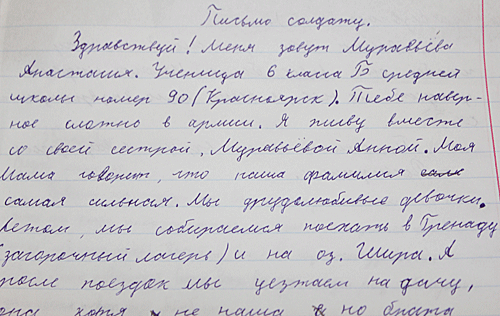 Письмо солдату.
Здравствуй! Меня зовут Муравьёва
Анастасия. Ученица 6 класа Б средней
школы номер 90 (Красноярск). Тебе навер-
ное сложно в армии. Я живу вместе
со своей сестрой, Муравьёвой Анной. Моя
Мама говорит, что наша фамилия
самая сильная. Мы трудолюбивые девочки.
Летом, мы собираемся поехать в Гренаду
(загорочный лагерь) и на оз. Шира. А
после поездок мы уезжаем на дачу,
она хотя не наша но брата